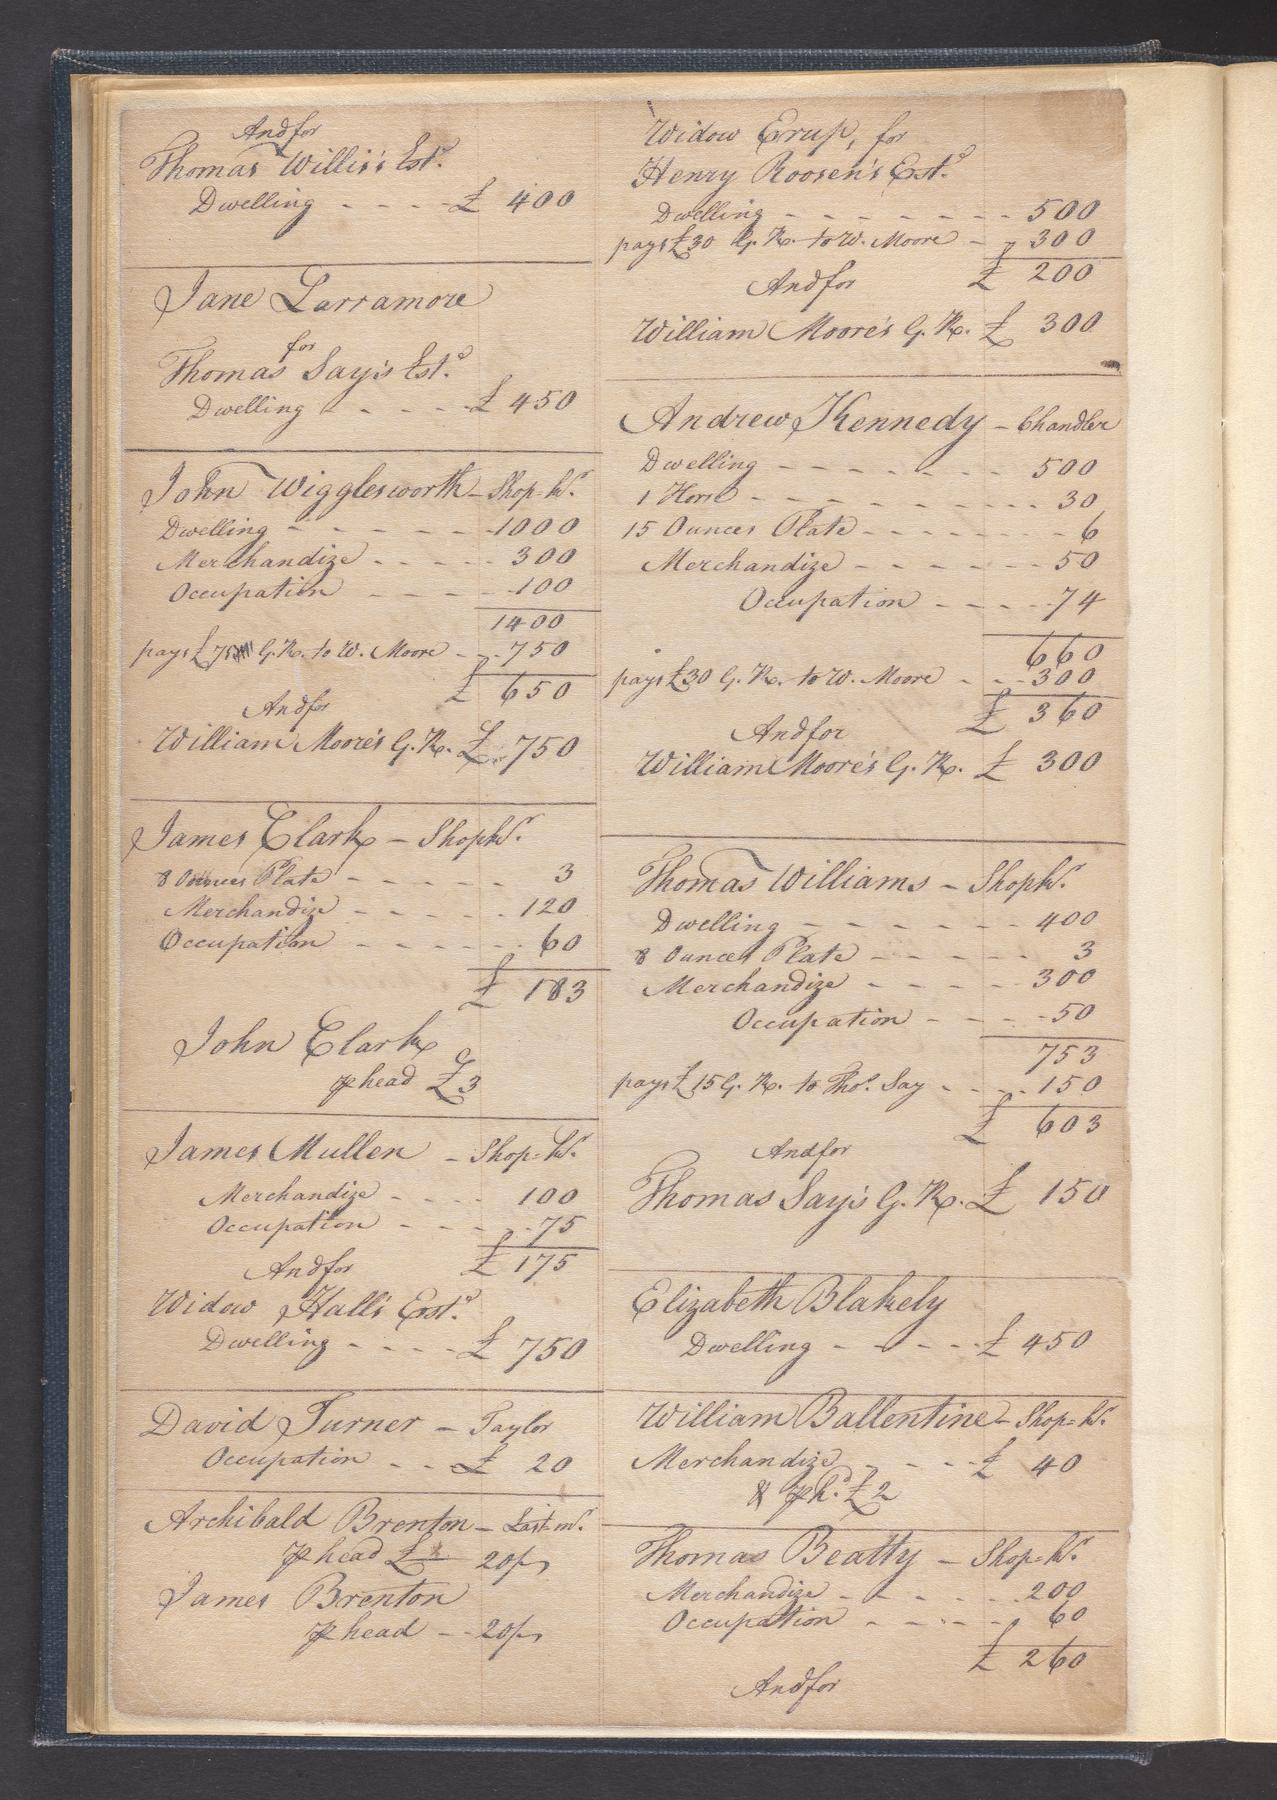 And for
Thomas Willis's Est.d
Dwelling - - - - £ 400
Jane Larramore
for
Thomas Say's Est.d
Dwelling - - - - - £ 450
John Wigglesworth - Shop=kr.
Dwelling - - - - - - 1000
Merchandize - - - - - 300
Occupation - - - - - 100
1400
pays £75 G. R. to W. Moore - - 750
£ 650
And for
William Moore's G. R. £ 750
James Clark - Shopkr.
8 Ounces Plate - - - - - 3
Merchandize - - - - - 120
Occupation - - - - - 60
£ 183
John Clark
℔ head £3
James Mullen - Shop=kr.
Merchandize - - - - 100
Occupation - - - - - 75
£ 175
And for
Widow Hall's Est.d
Dwelling - - - - £ 750
David Turner - Taylor
Occupation - - £ 20
Archibald Brenton - Last=mr.
℔ head £ 20/-
James Brenton
℔ head - - 20/-
Widow Erup, for
Henry Roosen's Est.d
Dwelling - - - - - - - - 500
pays £30 G. R. to W. Moore - - 300
£ 200
And for
William Moore's G. R. £ 300
Andrew Kennedy - Chandler
Dwelling - - - - - - - 500
1 Horse - - - - - - - - 30
15 Ounces Plate - - - - - - - 6
Merchandize - - - - - - - 50
Occupation - - - - 74
660
pays £30 G. R. to W. Moore - - - 300
£ 360
And for
William Moore's G. R. £ 300
Thomas Williams - Shopkr.
Dwelling - - - - - - - 400
8 Ounces Plate - - - - - 3
Merchandize - - - - - 300
Occupation - - - - 50
753
pays £15 G. R. to Thos. Say - - - - 150
£ 603
And for
Thomas Say's G. R. £ 150
Elizabeth Blakely
Dwelling - - - - - £ 450
William Ballentine - Shop=kr.
Merchandize - - - - £ 40
& ℔ hd. £2
Thomas Beatty - Shop=kr.
Merchandize - - - - - - 200
Occupation - - - - - 60
£ 260
And for